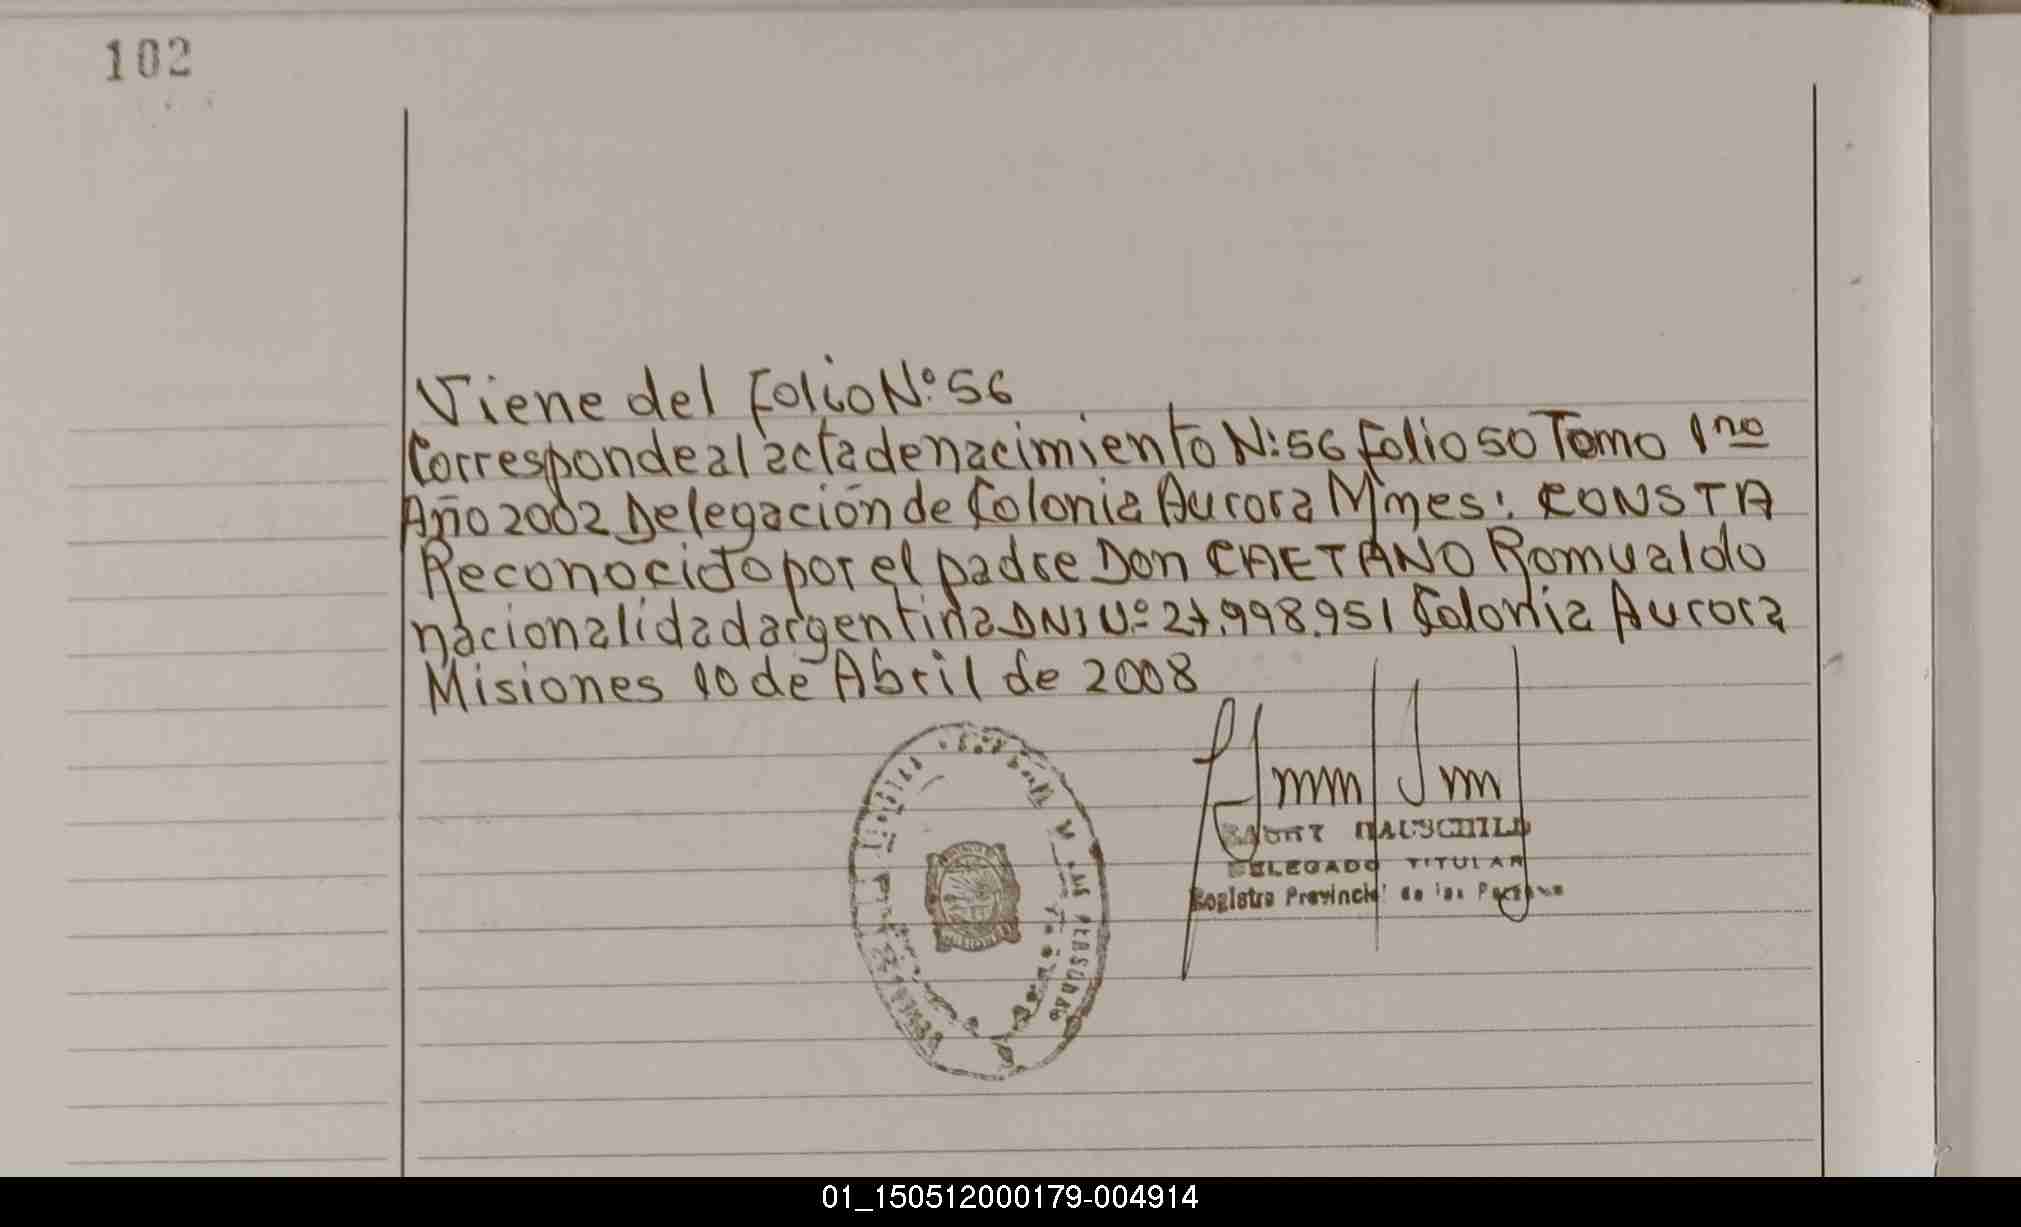 102
Viene del Folio N:º 56
Corresponde al acta de nacimiento N:56 Folio 50 Tomo 1no
Año 2002 Delegación de Colonia Aurora Mnes: CONSTA
Reconocido por el padre Don CAETANO Romualdo
nacionalidad argentina DNI Nº 27.998.951 Colonia Aurora
Misiones 10 de Abril de 2008
HAUSCHILD
DELEGADO TITULAR
Registro Provincial de las Personas
01_150512000179-004914